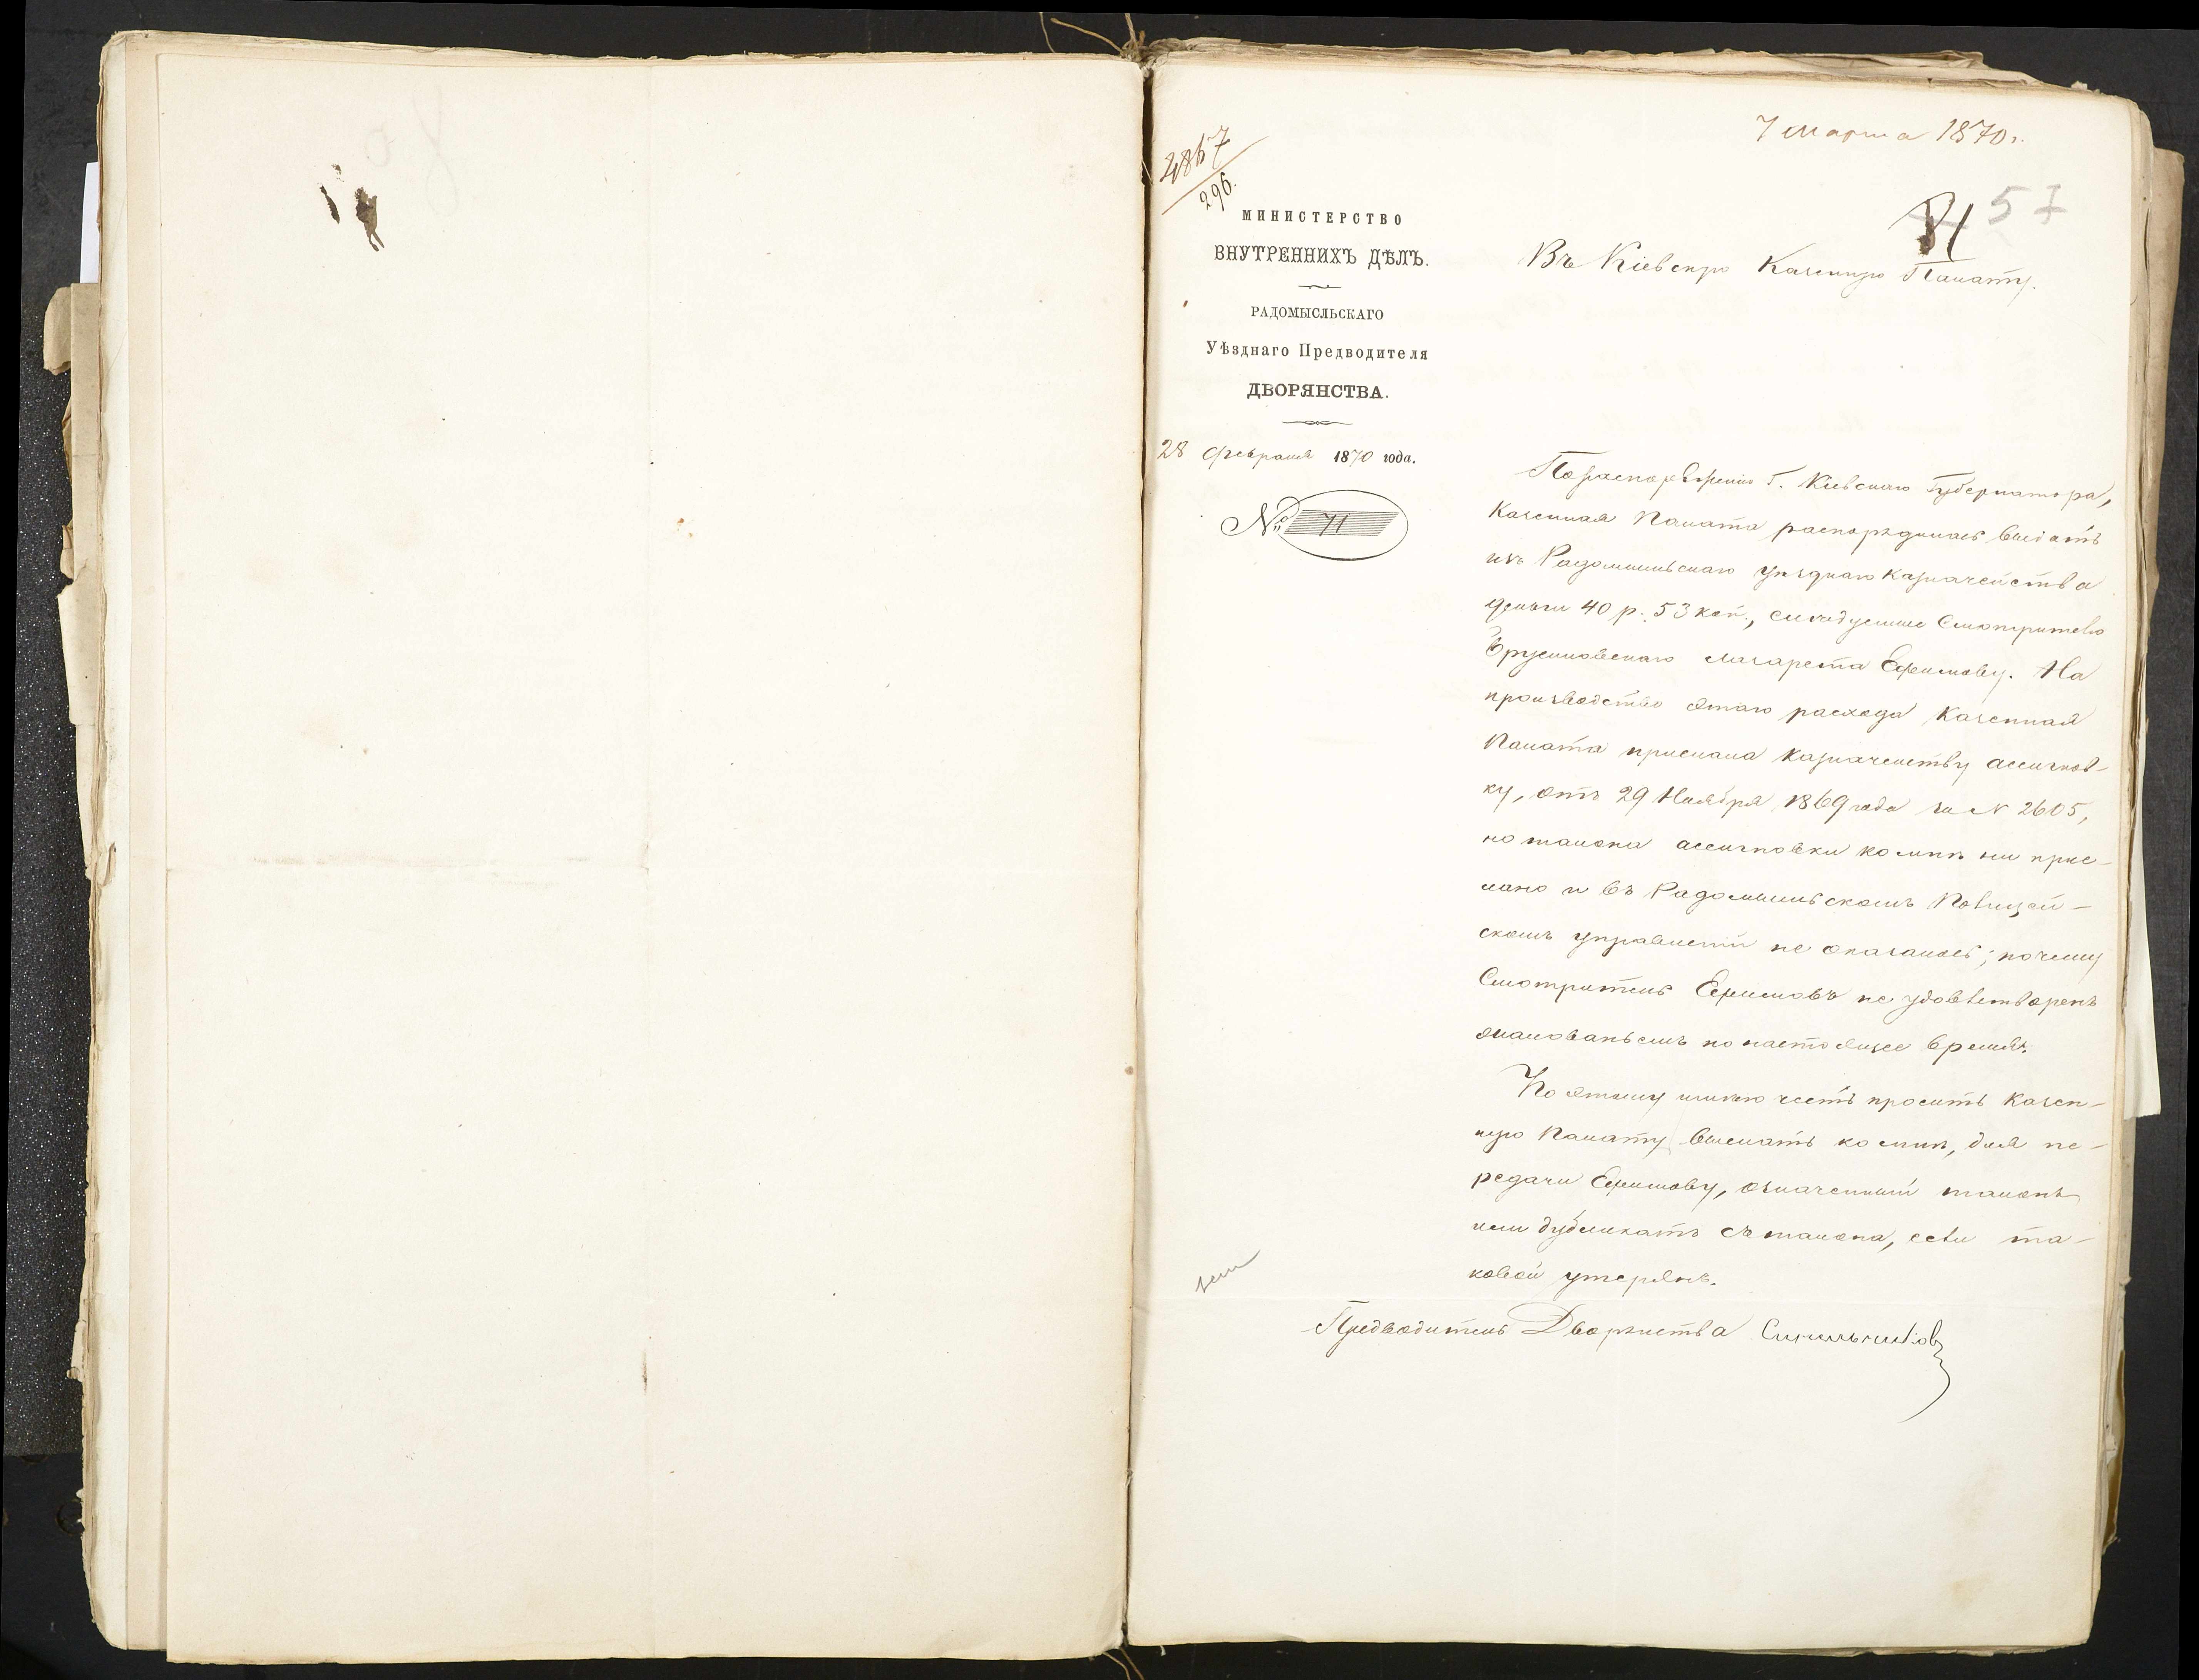 7 Марта 1870 г.
4867
296.
81 57
МИНИСТЕРСТВО
ВНУТРЕННИХЪ ДѢЛЪ.
РАДОМЫСЛЬСКАГО
Уѣзднаго Предводителя
ДВОРЯНСТВА.
28 февраля 1870 года.
№ 71
Въ Кіевскую Казенную Палату.
По распоряженію Г. Кіевскаго Губернатора,
Казенная Палата распорядилась выдать
изъ Радомысльскаго уѣзднаго казначейства
деньги 40 р. 53 коп., слѣдуемые Смотрителю
Брусиловскаго лазарета Ефимову. На
производство этаго расхода Казенная
Палата прислала Казначейству ассигнов-
ку, отъ 29 Ноября 1869 года за N 2605,
но талона ассигновки ко мнѣ ни прис-
лано и въ Радомысльскомъ Полицей-
скомъ управленіи не оказалось; почему
Смотритель Ефимовъ не удовлетворенъ
жалованьемъ по настоящее время.
По этому имѣю честь просить Казен-
ную Палату выслать ко мнѣ, для пе-
редачи Ефимову, означенный талонъ
или дубликатъ съ талона, если та-
ковой утерянъ.
Предводитель Дворянства